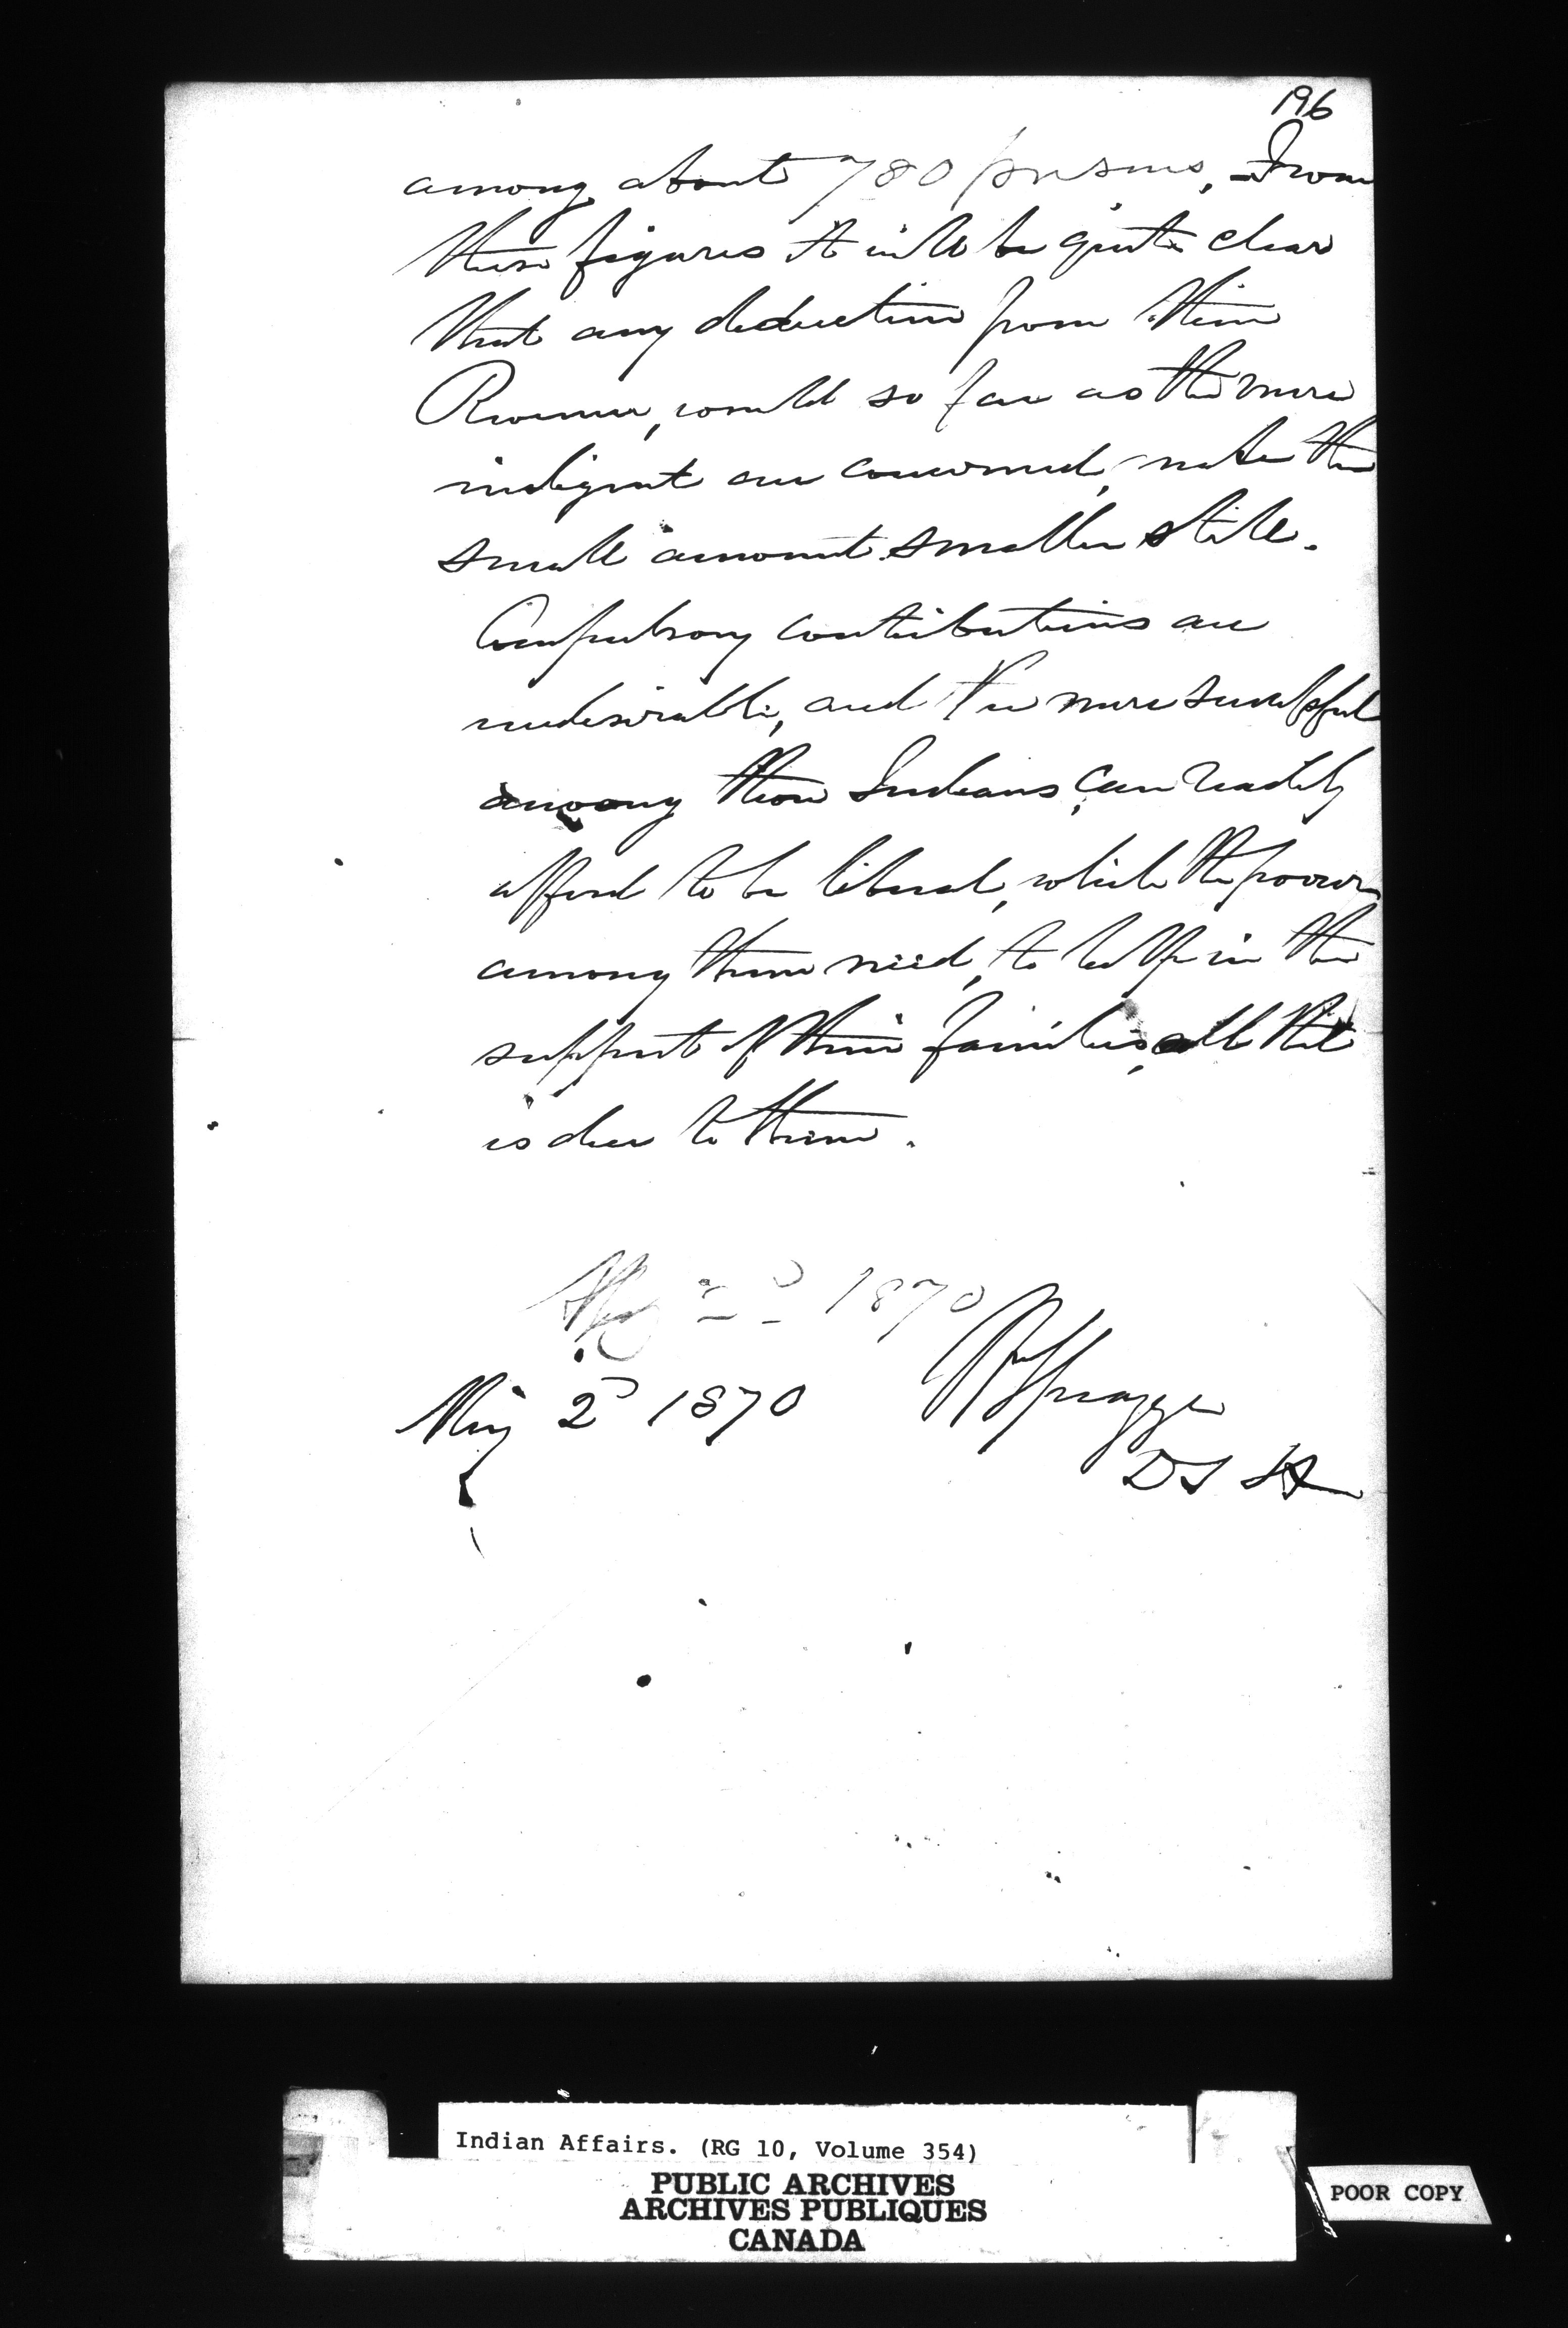 196
among about 780 persons, From
these figures it will be quite clear
that any deduction from their
Revenue, would so far as the more
indigent are concerned, make the
small amount smaller still.
Compulsory contributions are
undesirable, and the more successful
among these Indians, can readily
afford to be liberal, while the poorer
among them need, to help in the
support of their families, all that
is due to them.
May 2d 1870
May 2d 1870 Spragge
DS IA
Indian Affairs. (RG 10, Volume 354)
PUBLIC ARCHIVES
ARCHIVES PUBLIQUES
CANADA
POOR COPY